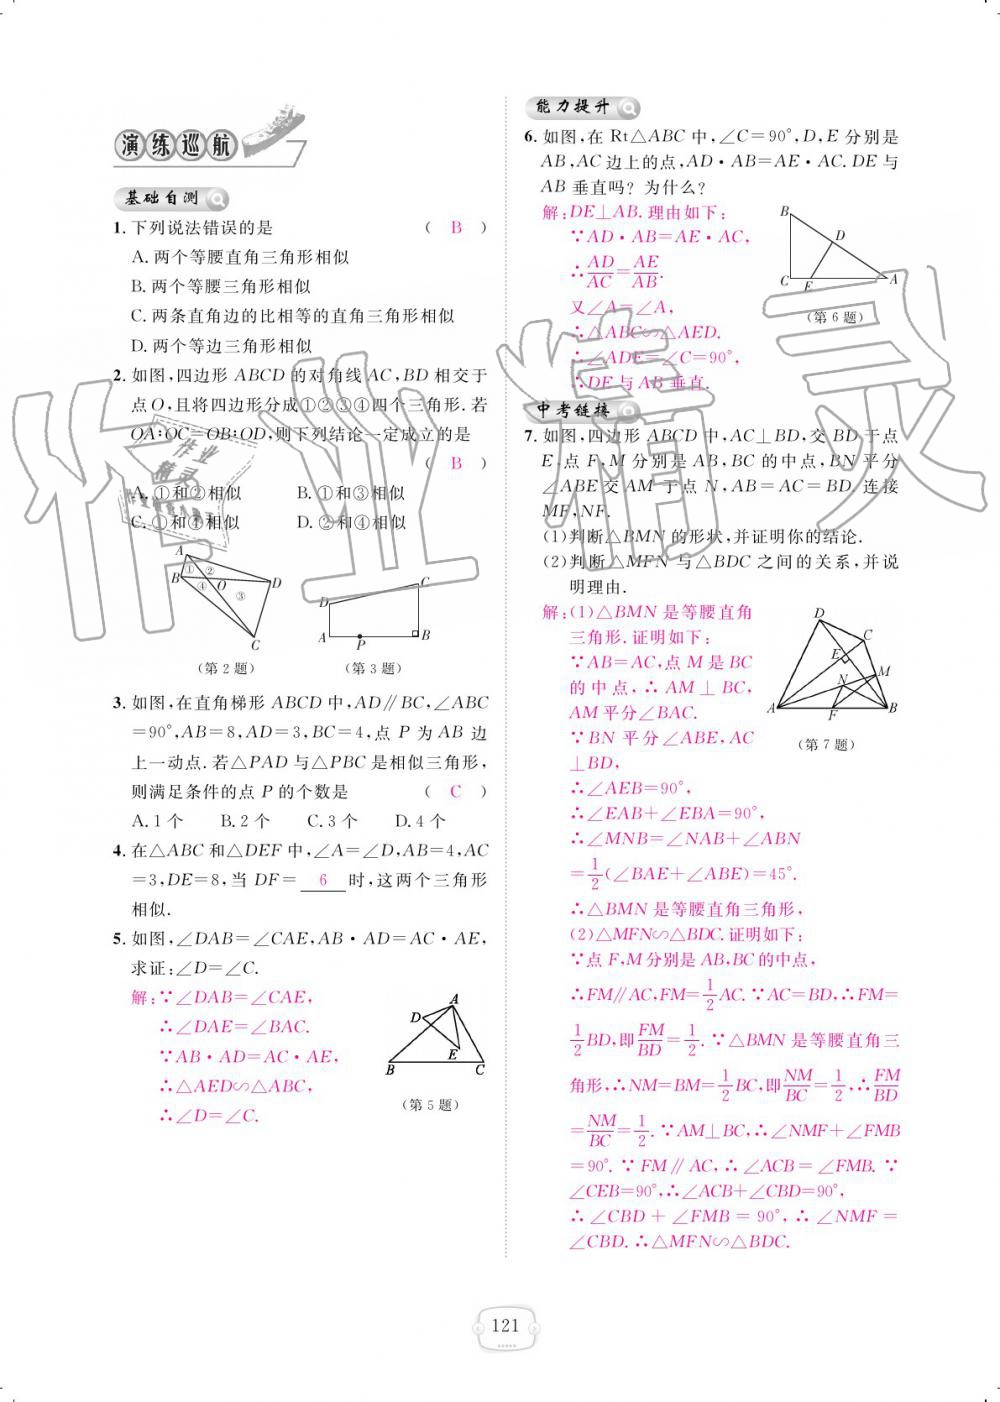 演练巡航
基础自测
1. 下列说法错误的是 ( B )
A. 两个等腰直角三角形相似
B. 两个等腰三角形相似
C. 两条直角边的比相等的直角三角形相似
D. 两个等边三角形相似
2. 如图,四边形 ABCD 的对角线 AC,BD 相交于
点 O,且将四边形分成①②③④四个三角形.若
OA∶OC=OB∶OD,则下列结论一定成立的是
( B )
A. ①和②相似 B. ①和③相似
C. ①和④相似 D. ②和④相似
A ① ② B ④ O D ③ C
(第 2 题)
C D A P B
(第 3 题)
3. 如图,在直角梯形 ABCD 中,AD∥BC,∠ABC
=90°,AB=8,AD=3,BC=4,点 P 为 AB 边
上一动点.若△PAD 与△PBC 是相似三角形,
则满足条件的点 P 的个数是 ( C )
A. 1 个 B. 2 个 C. 3 个 D. 4 个
4. 在△ABC 和△DEF 中,∠A=∠D,AB=4,AC
=3,DE=8,当 DF= 6 时,这两个三角形
相似.
5. 如图,∠DAB=∠CAE,AB·AD=AC·AE,
求证:∠D=∠C.
解:∵∠DAB=∠CAE,
∴∠DAE=∠BAC.
∵AB·AD=AC·AE,
∴△AED∽△ABC,
∴∠D=∠C.
A D E B C
(第 5 题)
能力提升
6. 如图,在 Rt△ABC 中,∠C=90°,D,E 分别是
AB,AC 边上的点,AD·AB=AE·AC. DE 与
AB 垂直吗? 为什么?
解:DE⊥AB. 理由如下:
∵AD·AB=AE·AC,
∴AD/AC=AE/AB.
又∠A=∠A,
∴△ABC∽△AED.
∴∠ADE=∠C=90°,
∴DE 与 AB 垂直.
B D C E A
(第 6 题)
中考链接
7. 如图,四边形 ABCD 中,AC⊥BD,交 BD 于点
E,点 F,M 分别是 AB,BC 的中点,BN 平分
∠ABE 交 AM 于点 N,AB=AC=BD. 连接
MF,NF.
(1)判断△BMN 的形状,并证明你的结论.
(2)判断△MFN 与△BDC 之间的关系,并说
明理由.
解:(1)△BMN 是等腰直角
三角形.证明如下:
∵AB=AC,点 M 是 BC
的中点,∴AM⊥BC,
AM 平分∠BAC.
∵BN 平分∠ABE,AC
⊥BD,
∴∠AEB=90°,
∴∠EAB+∠EBA=90°,
∴∠MNB=∠NAB+∠ABN
=1/2(∠BAE+∠ABE)=45°.
∴△BMN 是等腰直角三角形,
(2)△MFN∽△BDC. 证明如下:
∵点 F,M 分别是 AB,BC 的中点,
∴FM∥AC,FM=1/2AC. ∵AC=BD,∴FM=
1/2BD,即FM/BD=1/2. ∵△BMN 是等腰直角三
角形,∴NM=BM=1/2BC,即NM/BC=1/2,∴FM/BD
=NM/BC=1/2. ∵AM⊥BC,∴∠NMF+∠FMB
=90°. ∵FM∥AC,∴∠ACB=∠FMB. ∵
∠CEB=90°,∴∠ACB+∠CBD=90°,
∴∠CBD+∠FMB=90°,∴∠NMF=
∠CBD. ∴△MFN∽△BDC.
D C E N M A F B
(第 7 题)
作业精灵
121